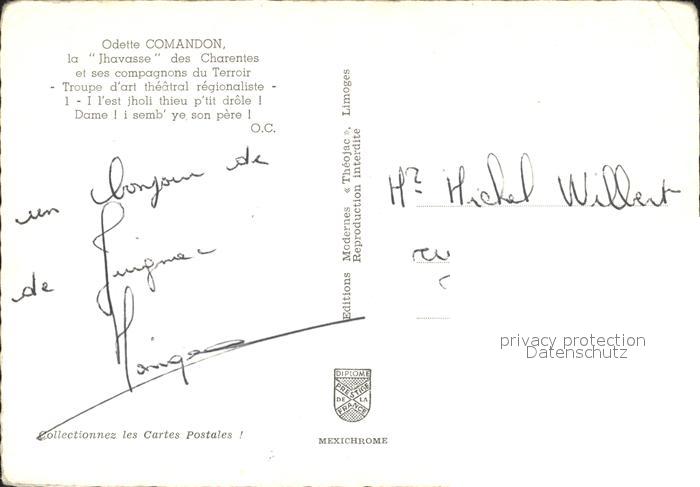 Odette COMANDON,
la "Jhavasse" des Charentes
et ses compagnons du Terroir
- Troupe d'art théâtral régionaliste -
1 - I l'est jholi thieu p'tit drôle !
Dame ! i semb' ye son père !
O.C.
un bonjour de
de
Editions Modernes « Théojac », Limoges
Reproduction interdite
Mr Michel Willert
privacy protection
Datenschutz
DIPLOME
PRESTIGE
DE LA
FRANCE
Collectionnez les Cartes Postales !
MEXICHROME